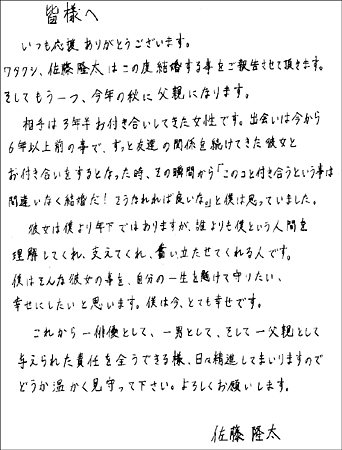 皆様へ
いつも応援ありがとうございます。
ワタクシ、佐藤隆太はこの度結婚する事をご報告させて頂きます。
そしてもう一つ、今年の秋に父親になります。
相手は3年半お付き合いしてきた女性です。出会いは今から
6年以上前の事で、ずっと友達の関係を続けてきた彼女と
お付き合いをするとなった時、その瞬間から「このコと付き合うという事は
間違いなく結婚だ！そうなれれば良いな。」と僕は思っていました。
彼女は僕より年下ではありますが、誰よりも僕という人間を
理解してくれ、支えてくれ、奮い立たせてくれる人です。
僕はそんな彼女の事を、自分の一生を懸けて守りたい、
幸せにしたいと思います。僕は今、とても幸せです。
これから一俳優として、一男として、そして一父親として
与えられた責任を全うできる様、日々精進してまいりますので
どうか温かく見守って下さい。よろしくお願いします。
佐藤隆太